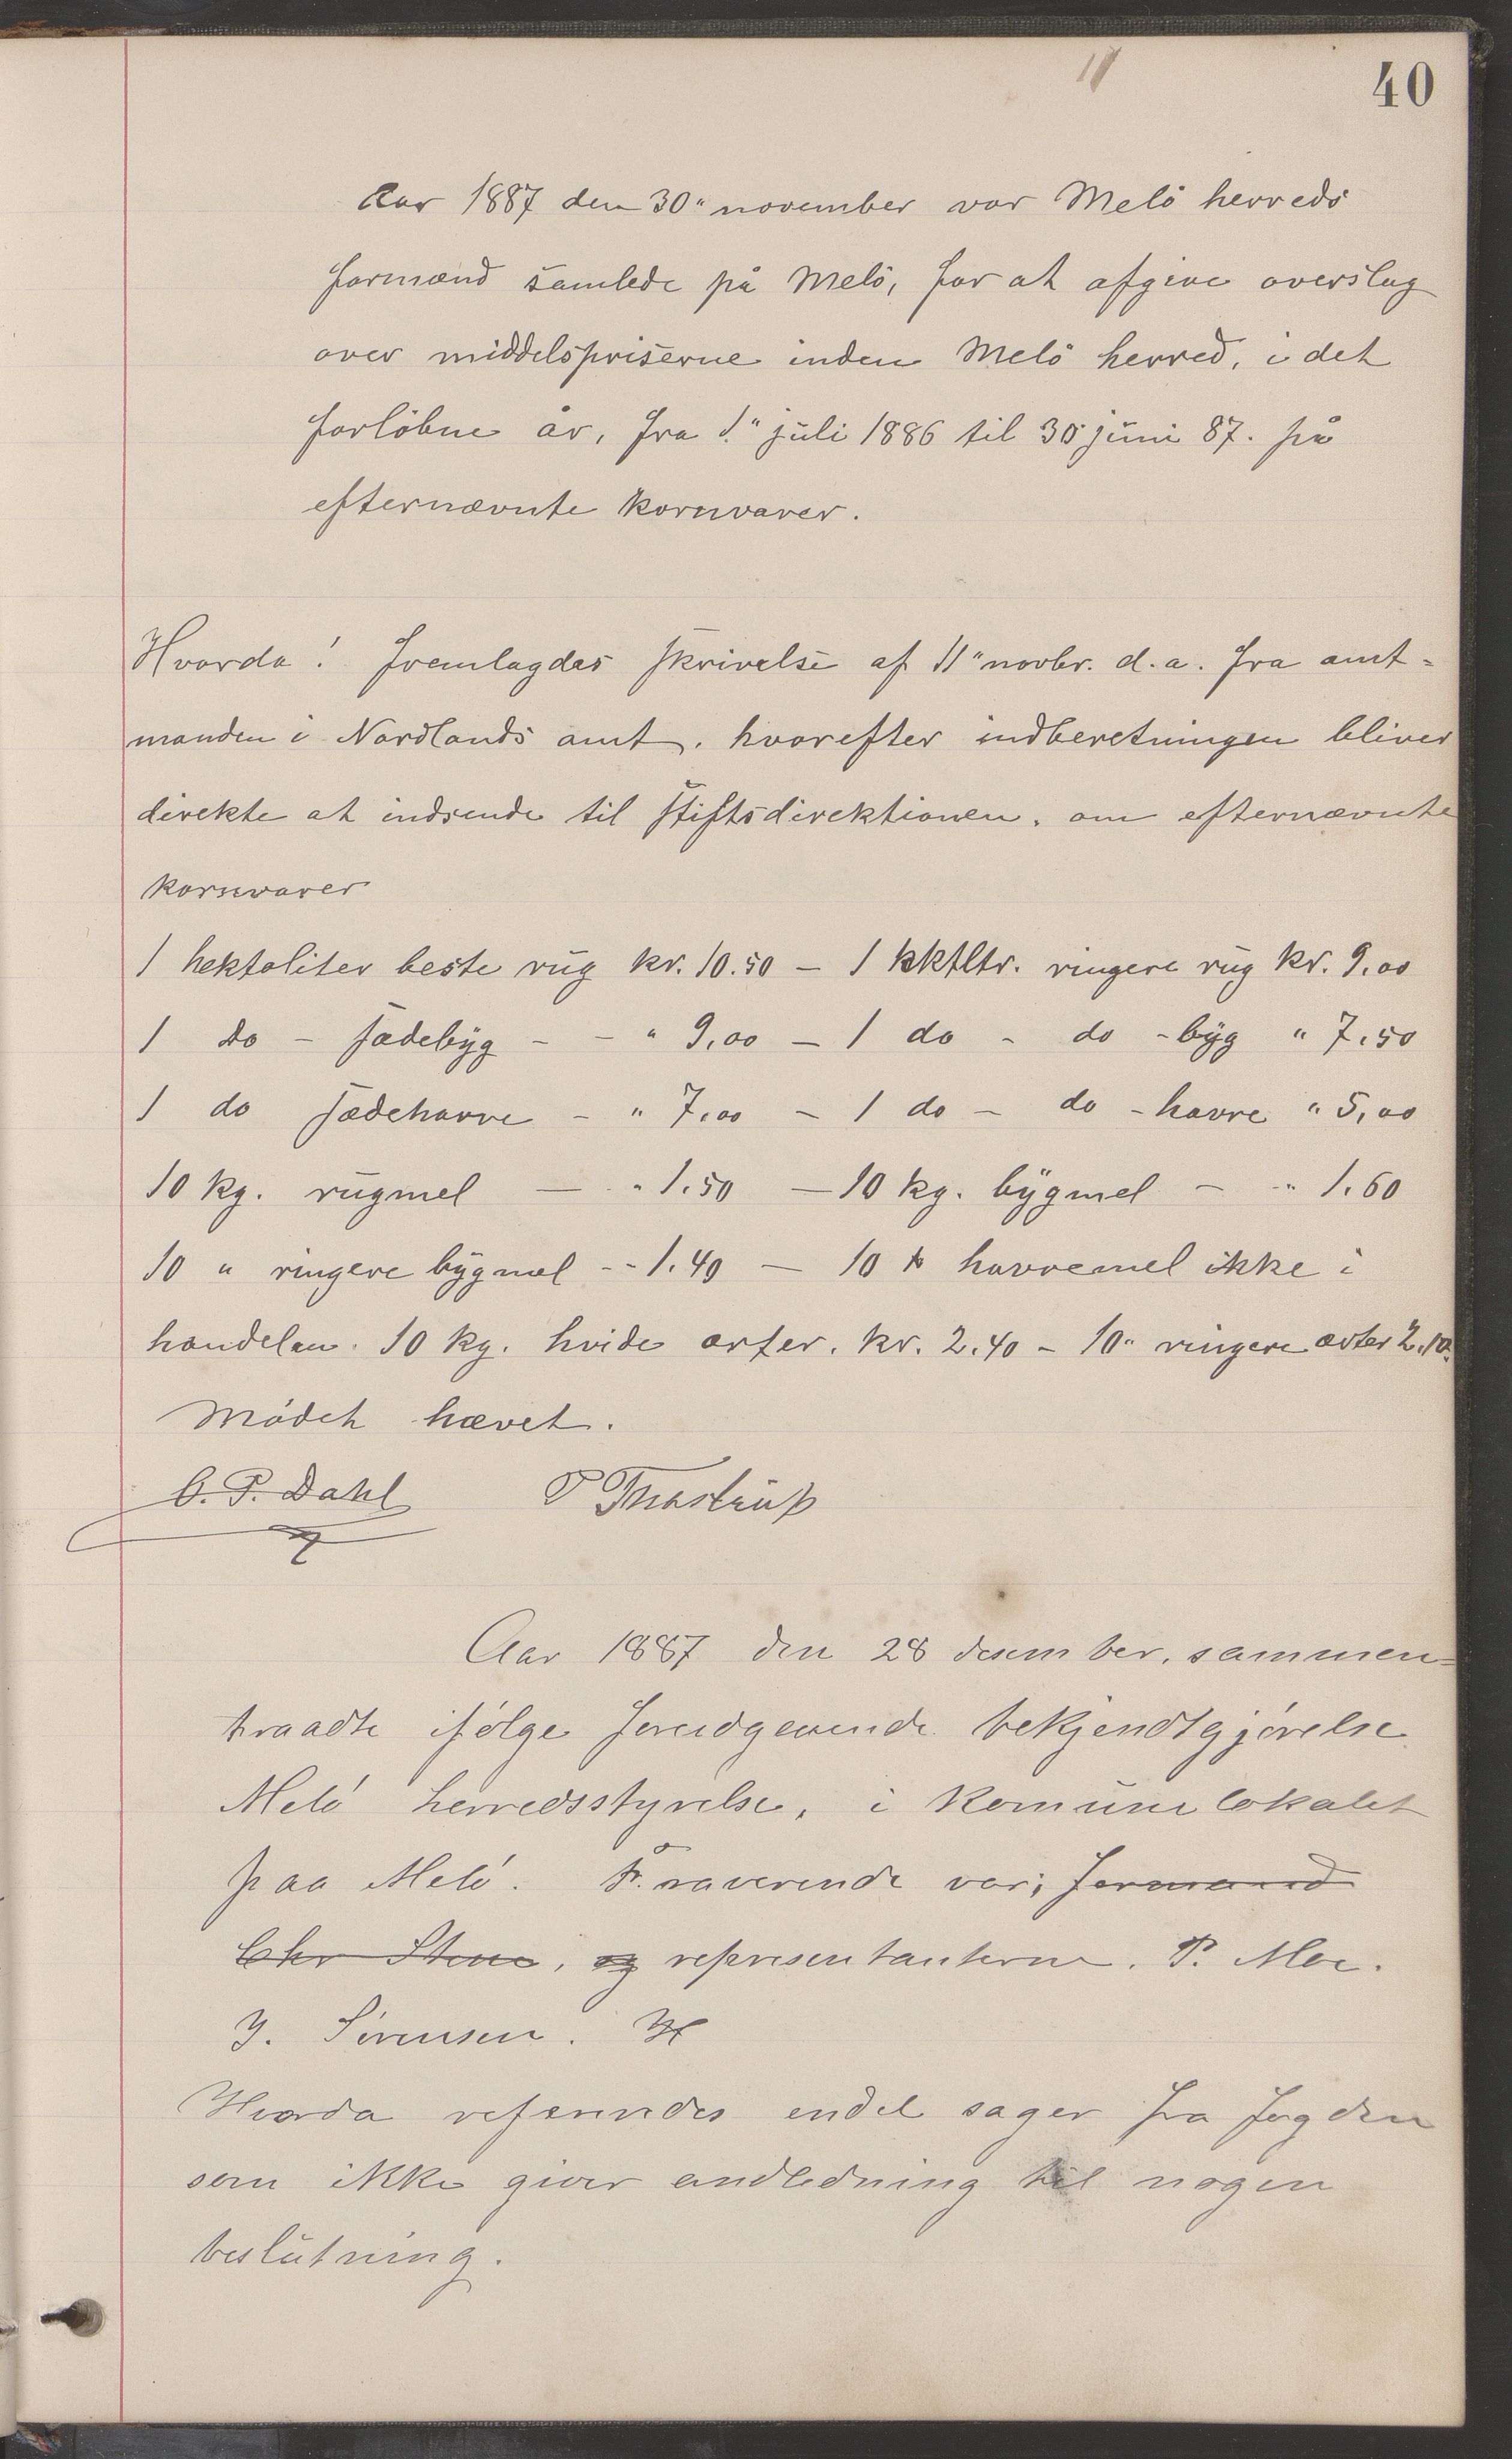 40
Aar 1887 den 30" november var Melö herreds
formænd samlede på Melö, for at afgive overslag
over middelspriserne inden Melö herred, i det
forløbne år, fra 1." juli 1886 til 30 juni 87. på
efternævnte kornvarer.
Hvorda! fremlagdes skrivelse af 11" novbr. d.a. fra amt=
manden i Nordlands amt, hvorefter indberetningen bliver
direkte at indsende til stiftsdirektionen, om efternævnte
kornvarer
1 hektoliter beste rug kr. 10.50 – 1 hktltr. ringere rug kr. 9,00
1 Do – sædebyg – – " 9,00 – 1 do – do – byg " 7,50
1 do sædehavre – " 7,00 – 1 do – do – havre " 5,00
10 kg. rugmel — " 1.50 — 10 kg. bygmel – " 1.60
10 " ringere bygmel - - 1.40 — 10 k havremel ikke i
handelen. 10 kg. hvide erter. kr. 2.40 – 10" ringere erter 2.10.
Mödet hævet.
C. P. Dahl P Thrastrup
Aar 1887 den 28 desember, sammen=
traadte ifølge forudgaaende bekjendtgjørelse
Melö herredsstyrelse, i Komunelokalet
paa Melö. Fraværende var; formand
Chr Stene, og representanterne. P. Moe.
J. Sørensen. H
Hvorda refereredes endel sager fra fogden
som ikke giver andledning til nogen
beslutning.